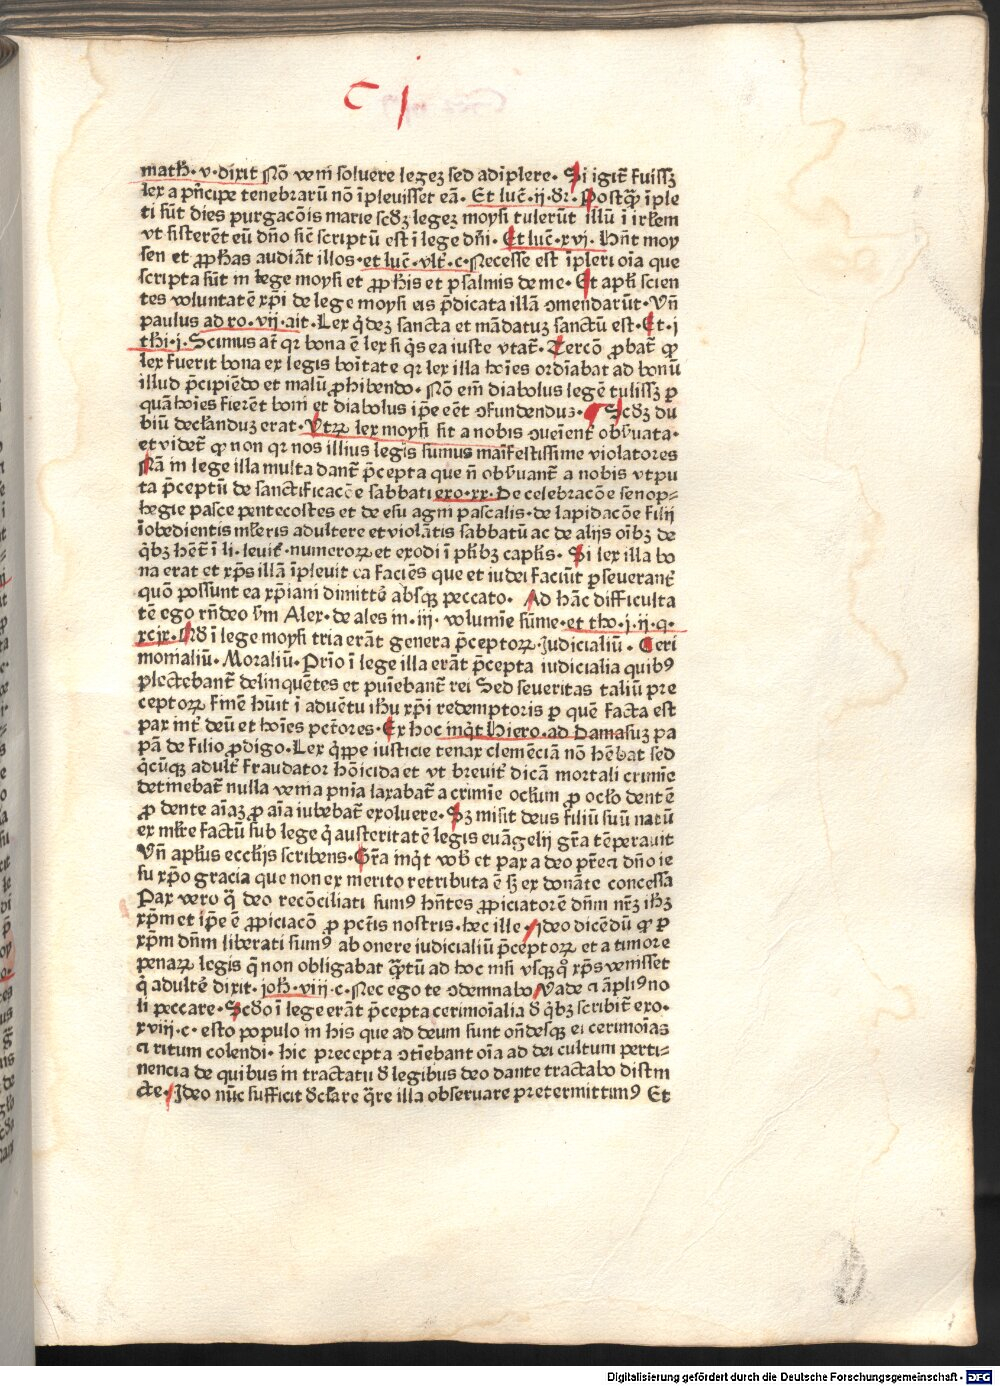 C j
math̄·v·dixit Nō veni soluere legez sed adīplere· Si igit᷒ fuissꝫ
lex a pn̄cipe tenebrarū nō īpleuisset eā· Et luc̄·ij·dr̄· Postꝙ̄ īple
ti sūt dies purgacōis marie scd̄ꝫ legez moysi tulerūt illū ī irl̄em
vt sisterēt eū dn̄o sic̄ scriptū est ī lege dn̄i· Et luc̄·xvj· Hn̄t moy
sen et ꝓphas audiāt illos· et luc̄·vlt̄·c·Necesse est īpleri oīa que
scripta sūt in lege moysi et ꝓphis et psalmis de me· Et apl̄i scien
tes voluntatē xp̄i de lege moysi eis p̄dicata illā ꝯmendarūt· Vn̄
paulus ad ro·vij·ait·Lex q̇dez sancta et mādatuz sanctū est· Et·j
thi·j·Scimus at̄ qr bona ē lex si q̇s ea iuste vtat᷒· Tercō ꝓbat᷒ ꝙ
lex fuerit bona ex legis boītate qr lex illa hoīes ordīabat ad bonū
illud p̄cipiēdo et malū ꝓhibendo· Nō em̄ diabolus legē tulissꝫ ꝑ
quā hoīes fierēt boni et diabolus ip̄e eēt ꝯfundenduꝫ· Scd̄ꝫ du
biū declāanduz erat·Vtꝝ lex moysi sit a nobis ꝯueient᷒ obẜuata·
et videt᷒ ꝙ non qr nos illius legis sumus maīfestissime violatores
Nā in lege illa multa dant᷒ p̄cepta que n̄ obẜuant᷒ a nobis vtpu
ta p̄ceptū de sanctificacōe sabbati exo·xx·De celebracōe senop⸗
hegie pasce pentecostes et de esu agni pascalis·de lapidacōe filij
īobedientis ml̄eris adultere et violātis sabbatū ac de alijs oībꝫ de
q̇bꝫ hēt᷒ ī li·leuit᷒·numeroꝝ et exodi ī pl̄ibꝫ capl̄is· Si lex illa bo
na erat et xp̄s illā īpleuit ea faciēs que et iudei faciūt ꝑseuerant᷒
quō possunt ea xp̄iani dimittē absqꝫ peccato· Ad hāc difficulta
tē ego rn̄deo ẜm Alex·de ales in·iij·volumīe sūme·et tho·j·ij·q·
xcix· Nō ī lege moysi tria erāt genera p̄ceptoꝝ·Judicialiū· Ceri
monialiū· Moraliū· Prīo ī lege illa erāt p̄cepta iudicialia quibꝰ
plectebant᷒ delinquētes et puīebant᷒ rei Sed seueritas taliū pre
ceptoꝝ finē hūit ī aduētu ih̄u xp̄i redemptoris ꝑ quē facta est
pax int᷒ deū et hoīes pct̄ores· Ex hoc inq̇t Hiero·ad Damasuꝫ pa
pā de filio ꝓdigo·Lex q̇ppe iusticie tenax clemēciā nō hēbat sed
q̇cūqꝫ adult᷒ fraudator hōicida et vt breuit᷒ dicā mortali crimīe
detinebat᷒ nulla venia pnīa laxabat᷒ a crimīe oclūm ꝓ oclo dentē
ꝓ dente aīaꝫ ꝓ aīa iubebat᷒ exoluere· Sꝫ misit deus filiū suū natū
ex ml̄re factū sub lege q̇ austeritatē legis euāgelij gr̄a tēperauit
Vn̄ apl̄us eccl̄ijs scribens· Gr̄a inq̇t vob̄ et pax a deo pr̄e ⁊ dn̄o ie
su xp̄o gracia que non ex merito retributa ē sꝫ ex donāte concessa
Pax vero q̄ deo recōciliati sumꝰ hn̄tes ꝓpiciatorē dn̄m nr̄ꝫ ih̄ꝫ
xp̄m et ip̄e ē ꝓpiciacō ꝓ pct̄is nostris·hec ille· Ideo dicēdū ꝙ ꝑ
xp̄m dn̄m liberati sumꝰ ab onere iudicialiū p̄ceptoꝝ et a timore
penaꝝ legis q̄ non obligabat ꝙ̄tū ad hoc nisi vsqꝫ qͦ xp̄s venisset
q̇ adultē dixit·joh̄·viij·c·Nec ego te ꝯdemnabo Vade ⁊ āpliꝰ no
li peccare· Scd̄o ī lege erāt p̄cepta cerimoīalia ꝺ q̇bꝫ scribit᷒ exo·
xviij·c·esto populo in his que ad deum sunt on̄desqꝫ ei cerimoīas
⁊ ritum colendi·hic precepta ꝯtīebant oīa ad dei cultum perti⸗
nencia de quibus in tractatu ꝺ legibus deo dante tractabo distin
cte· Ideo nūc sufficit ꝺclāre q̄re illa obseruare pretermittimꝰ Et
Digitalisierung gefördert durch die Deutsche Forschungsgemeinschaft · DFG